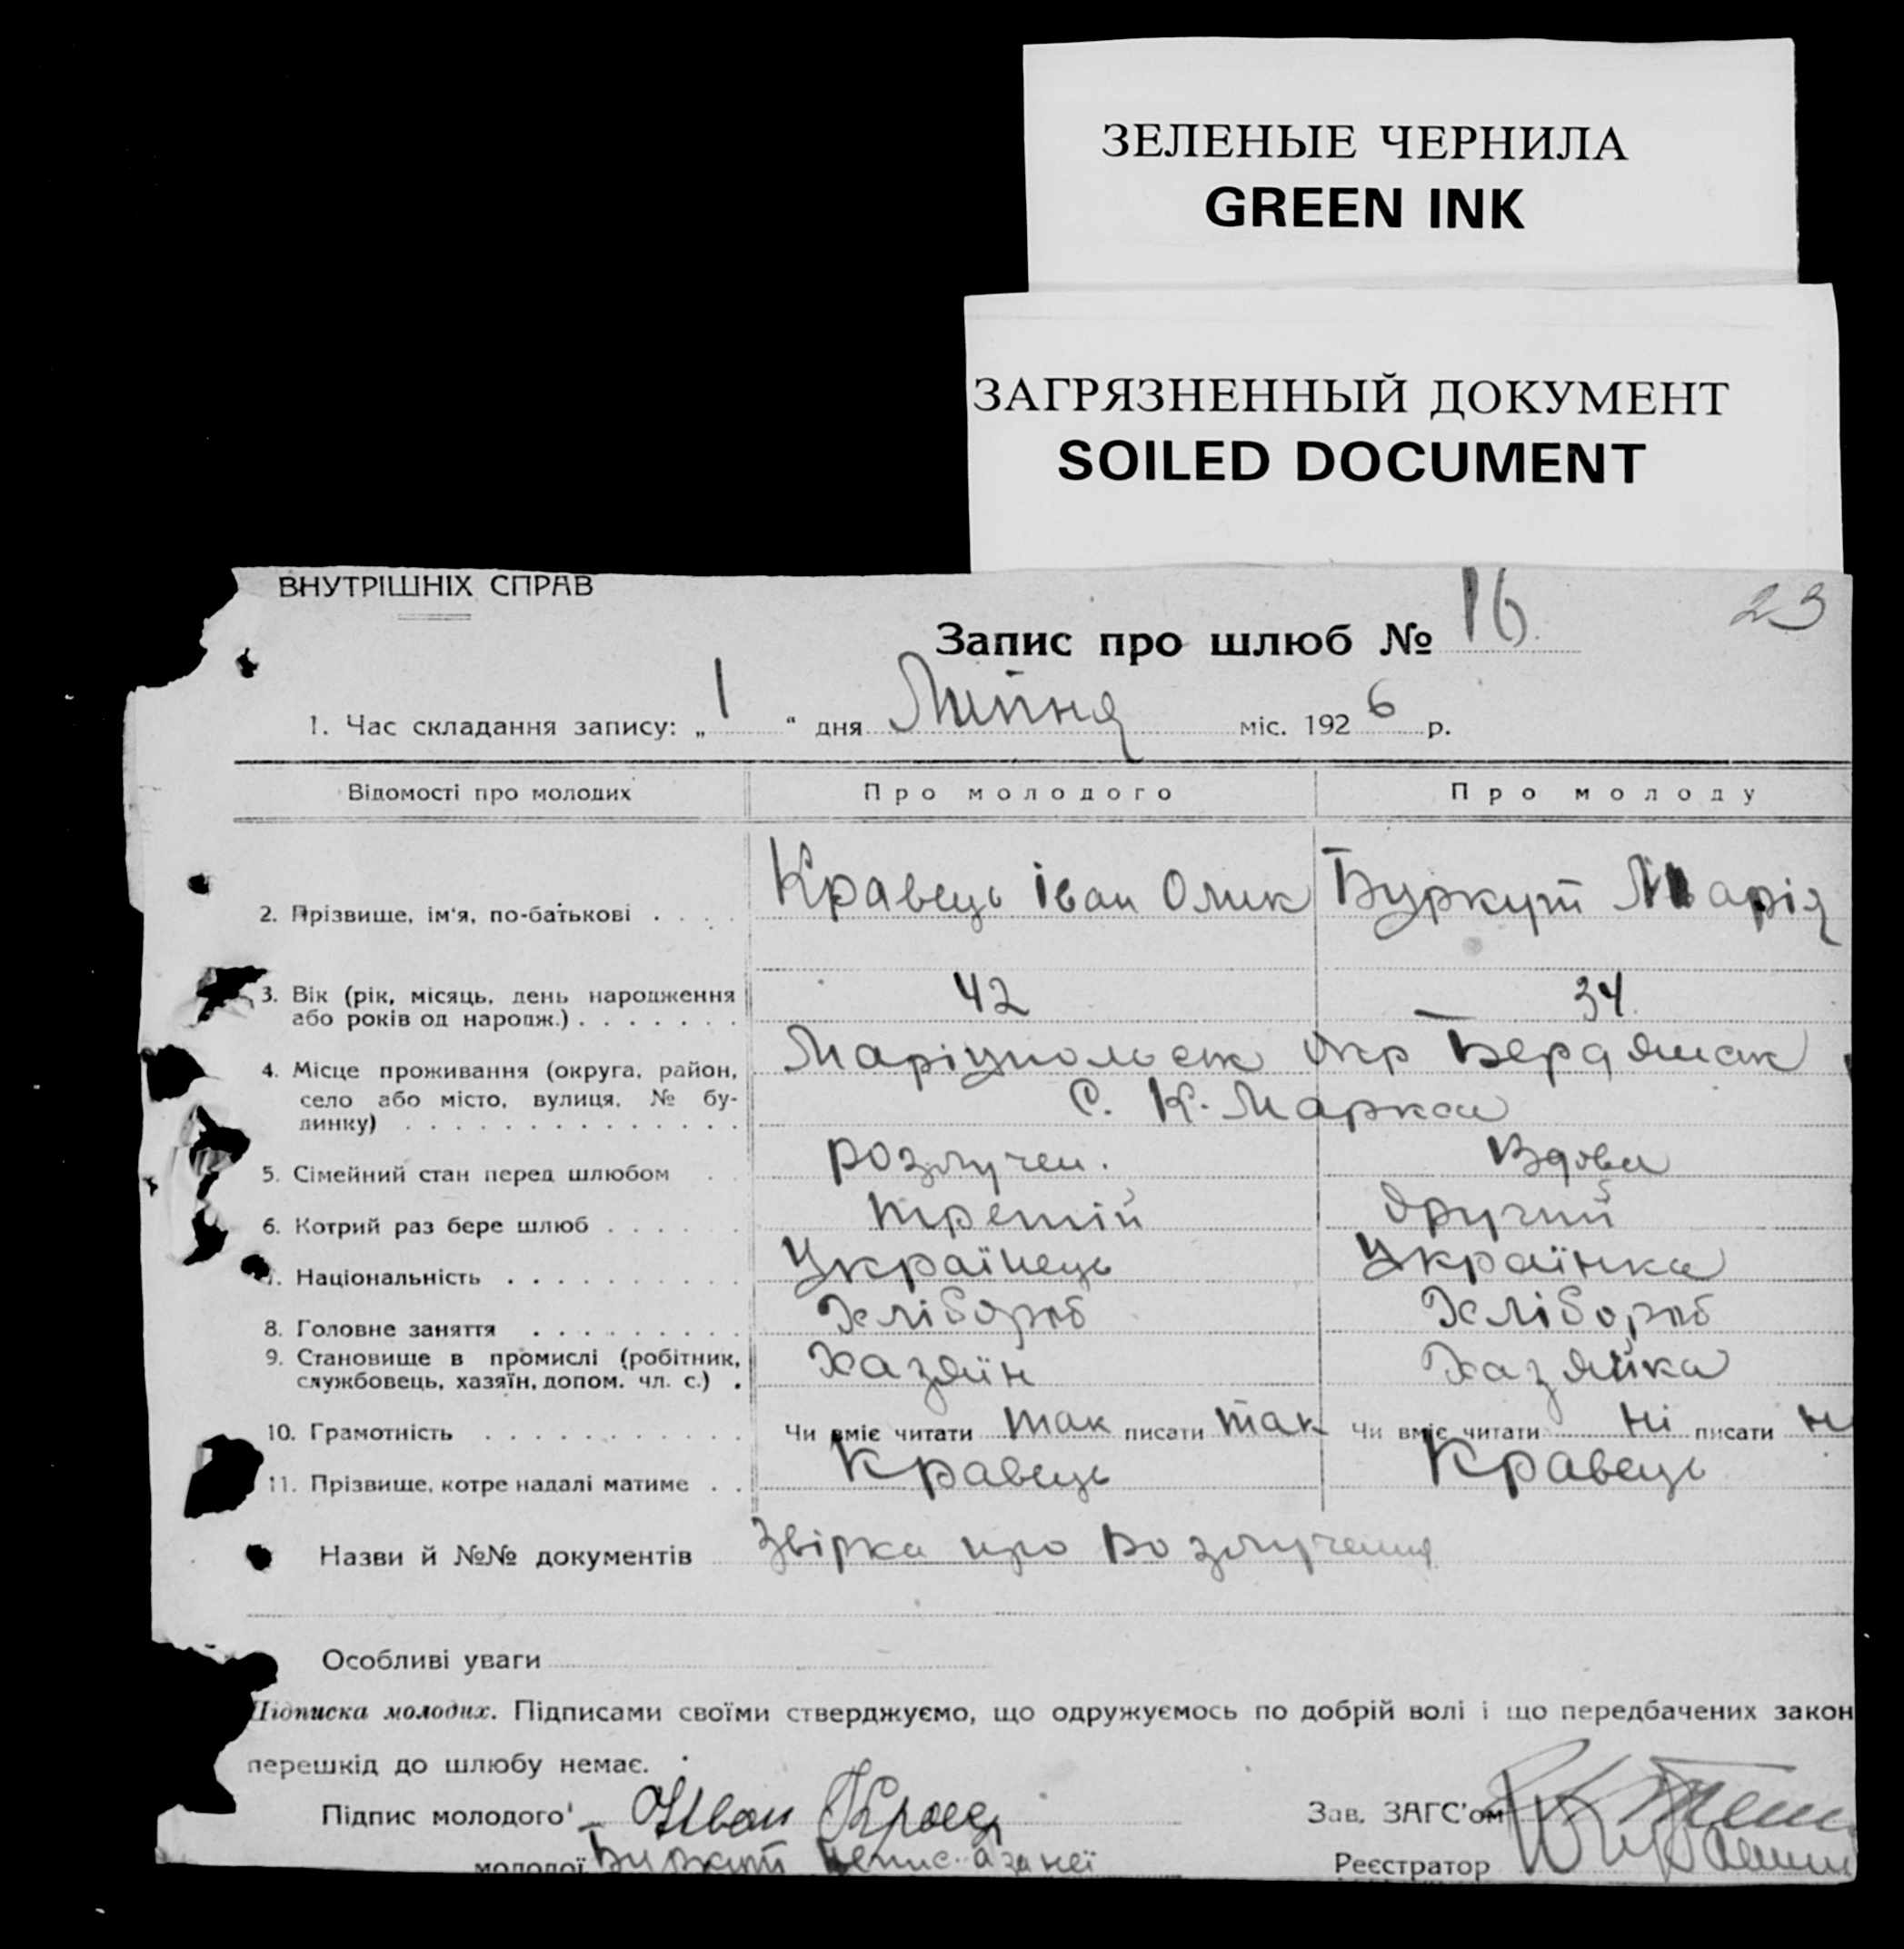 ЗЕЛЕНЫЕ ЧЕРНИЛА
GREEN INK
ЗАГРЯЗНЕННЫЙ ДОКУМЕНТ
SOILED DOCUMENT
ВНУТРІШНІХ СПРАВ
23
Запис про шлюб № 16
1. Час складання запису: „ 1 “ дня Липня міс. 1926 р.
Відомості про молодих Про молодого Про молоду
2. Прізвище, ім'я, по-батькові . . . . Кравець Іван Омик Буркут Марія
3. Вік (рік, місяць, день народження 42 34
або років од народж.) . . . . . . .
4. Місце проживання (округа, район, Маріупольск окр Бердянск
село або місто, вулиця, № бу- С. К. Маркса
динку) . . . . . . . . . . . . . .
5. Сімейний стан перед шлюбом . . розлучен. Вдова
6. Котрий раз бере шлюб . . . . . третій другий
7. Національність . . . . . . . . . . Українець Українка
8. Головне заняття . . . . . . . . . Хлібороб Хлібороб
9. Становище в промислі (робітник, Хазяїн Хазяйка
службовець, хазяїн, допом. чл. с.) .
10. Грамотність . . . . . . . . . . . Чи вміє читати так писати так Чи вміє читати ні писати н
11. Прізвище, котре надалі матиме . . Кравець Кравець
Назви й №№ документів Звірка про розлучення
Особливі уваги
Підписка молодих. Підписами своїми стверджуємо, що одружуємось по добрій волі і що передбачених закон
перешкід до шлюбу немає.
Підпис молодого Иван Кравец Зав. ЗАГС'ом
молодої Буркут непис. а за неї Реєстратор